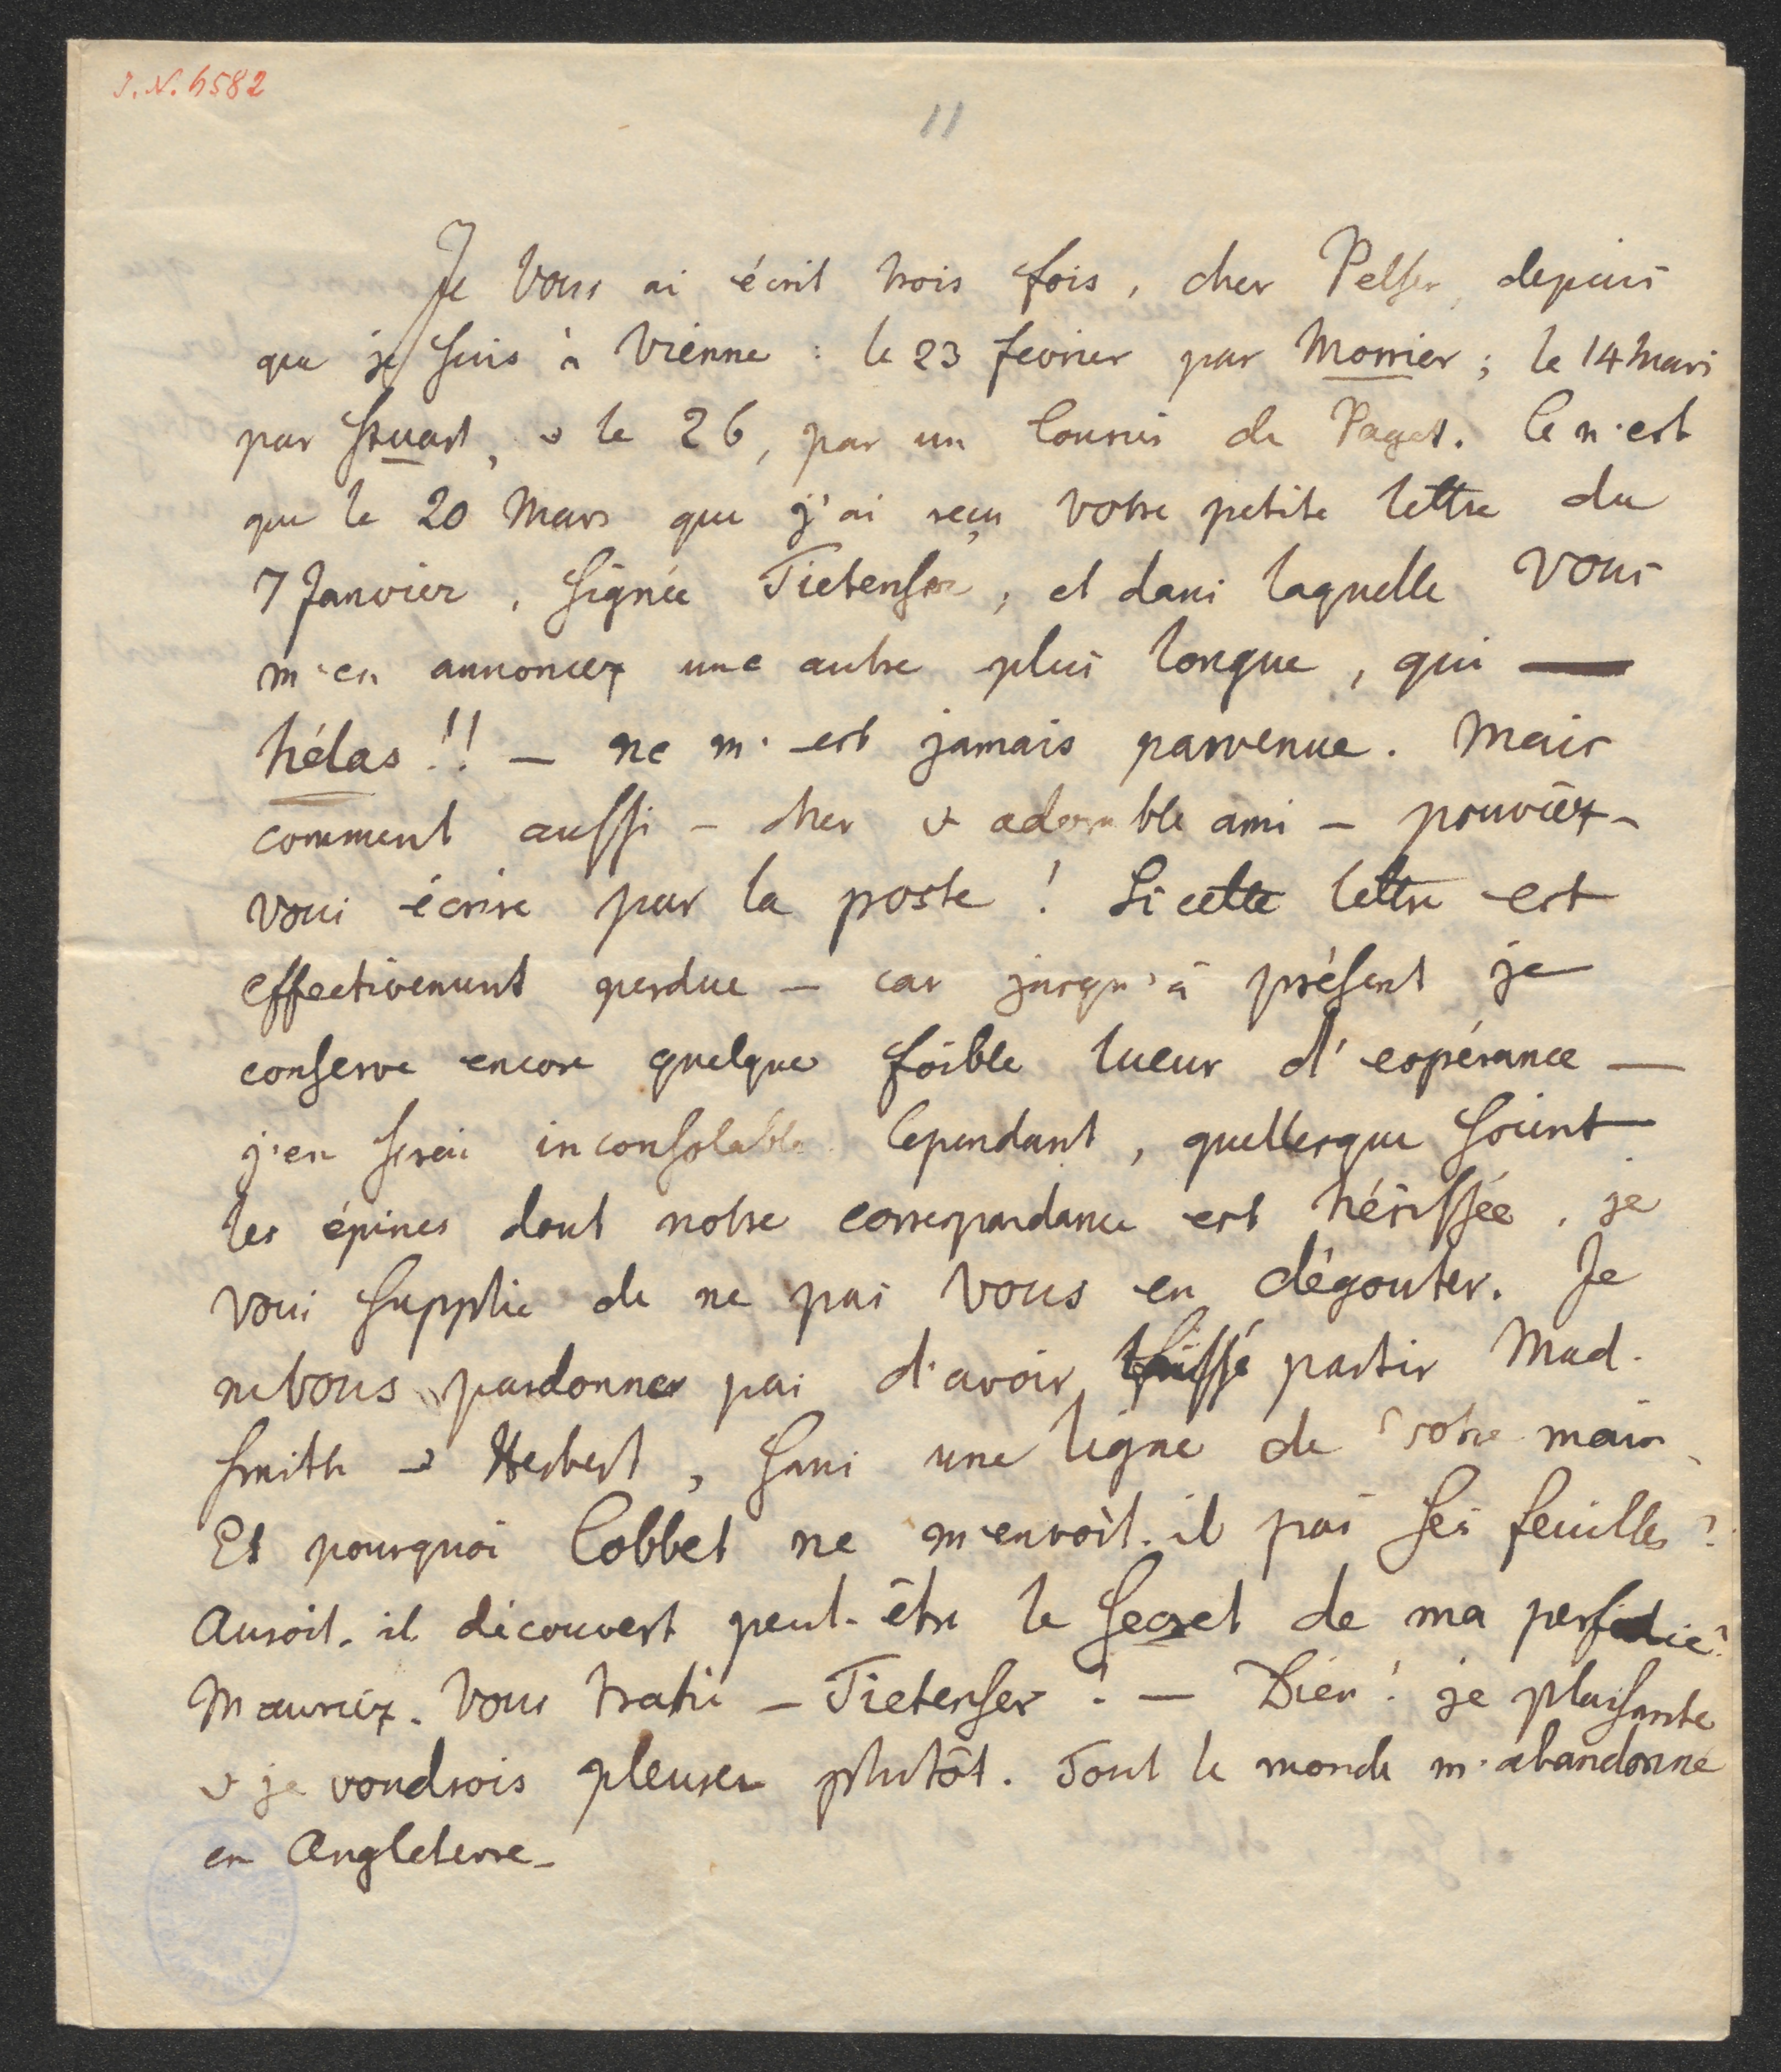 J.N. 6582
11
Je Vous ai écrit trois fois, cher Pelser, depuis
que je suis à Vienne : le 23 fevrier par Morrier; le 14 Mars
par Stuart, & le 26, par un Courier de Paget. Ce n'est
que le 20 Mars que j'ai reçu votre petite lettre du
7 Janvier, signée Tietenser, et dans laquelle Vous
m'en annoncez une autre plus longue, qui —
hélas!! — ne m'est jamais parvenue. Mais
comment aussi - cher & adorable ami - pouviéz-
vous écrire par la poste! Si cette lettre est
effectivement perdue - car jusqu'à présent je
conserve encore quelque foible lueur d'espérance —
j'en serai inconsolable. Cependant, quellesque soient
les épines dont notre correspondance est hérissée, je
vous supplie de ne pas Vous en dégouter. Je
ne Vous pardonner pas d'avoir laissé partir Mad.
Smith & Herbert, sans une ligne de votre main.
Et pourquoi Cobbet ne m'envoit-il pas ses feuilles?
Auroit-il découvert peut-être le secret de ma perfidie?
M'auriéz-Vous trahi - Tietenser? — Dieu! je plaisante
& je voudrois pleurer plutôt. Tout le monde m'abandonne
en Angleterre-